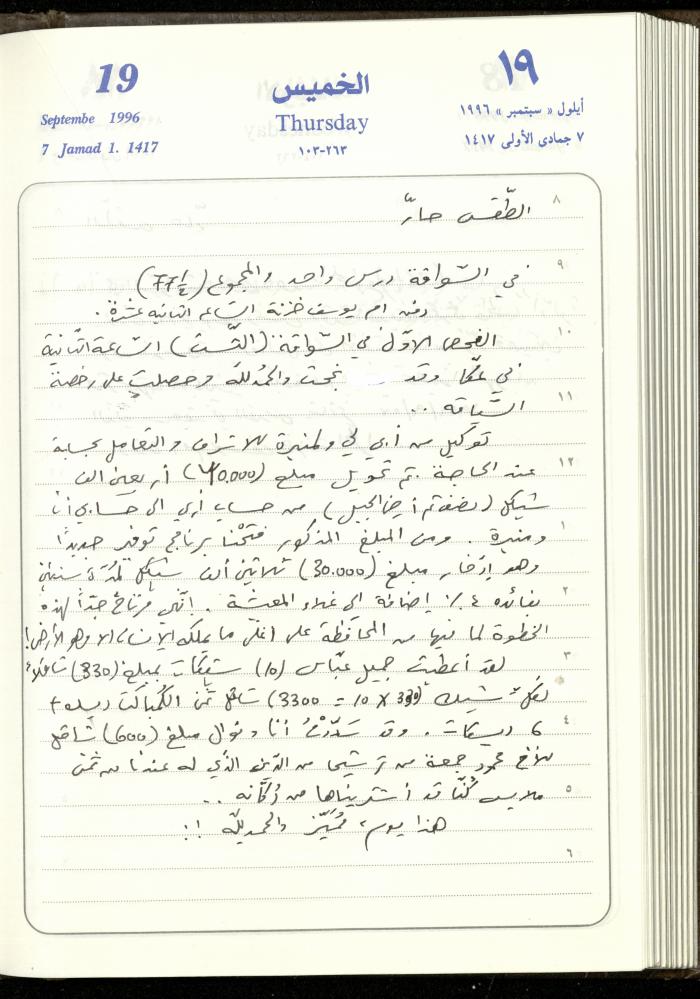 19
الخميس
١٩
Septembe 1996
Thursday
أيلول « سبتمبر » ١٩٩٦
7 Jamad 1. 1417
٢٦٣-١٠٣
٧ جمادى الأولى ١٤١٧
٨ الطّقس حارّ
٩ في السّواقة درس واحد والمجموع (77¼)
دفن ام يوسف خزنة السّاعه الثانيه عشرة.
١٠ الفحص الاوّل في السّواقة (التّست) السّاعة الثّانية
في عكّا وقد نجحت والحمدلله وحصلت على رخصة
١١ السّياقه ..
توكيل من أبي لي ولمنيرة للاشراف والتعامل بحسابه
١٢ عند الحاجة. تم تحويل مبلغ (40.000) أربعين الف
شيكل من حساب أبي الى حسابي أنا
١ ومنيرة. ومن المبلغ المذكور فتحنا برنامج توفير جديدًا
وهو إدّخار مبلغ (30.000) ثلاثين ألف شيكل لمدّة سنتين
٢ بفائده ٤٪ إضافة الى غلاء المعيشة. إنّني مرتاح جدّاً لهذه
الخطوة لما فيها من المحافظة على اغلى ما يملكه الإنسان الا وهو الأرض!
٣ لقد أعطيت جميل عبّاس (10) شيكات بمبلغ (330) شاقلاً
لكلّ شيك (330 X 10 = 3300) شاقل ثمن الكُمباكت
٤ 6 ديسكات. وقد سدّدْتُ أنا ونوال مبلغ (600) شاقل
للأخ محمود جمعة من ترشيحا من الدّين الذّي له عندنا من ثمن
٥ ملابس كُنّا قد أشتريناها من دُكّانه ..
هذا يوم مُميّز والحمدلله !!
٦